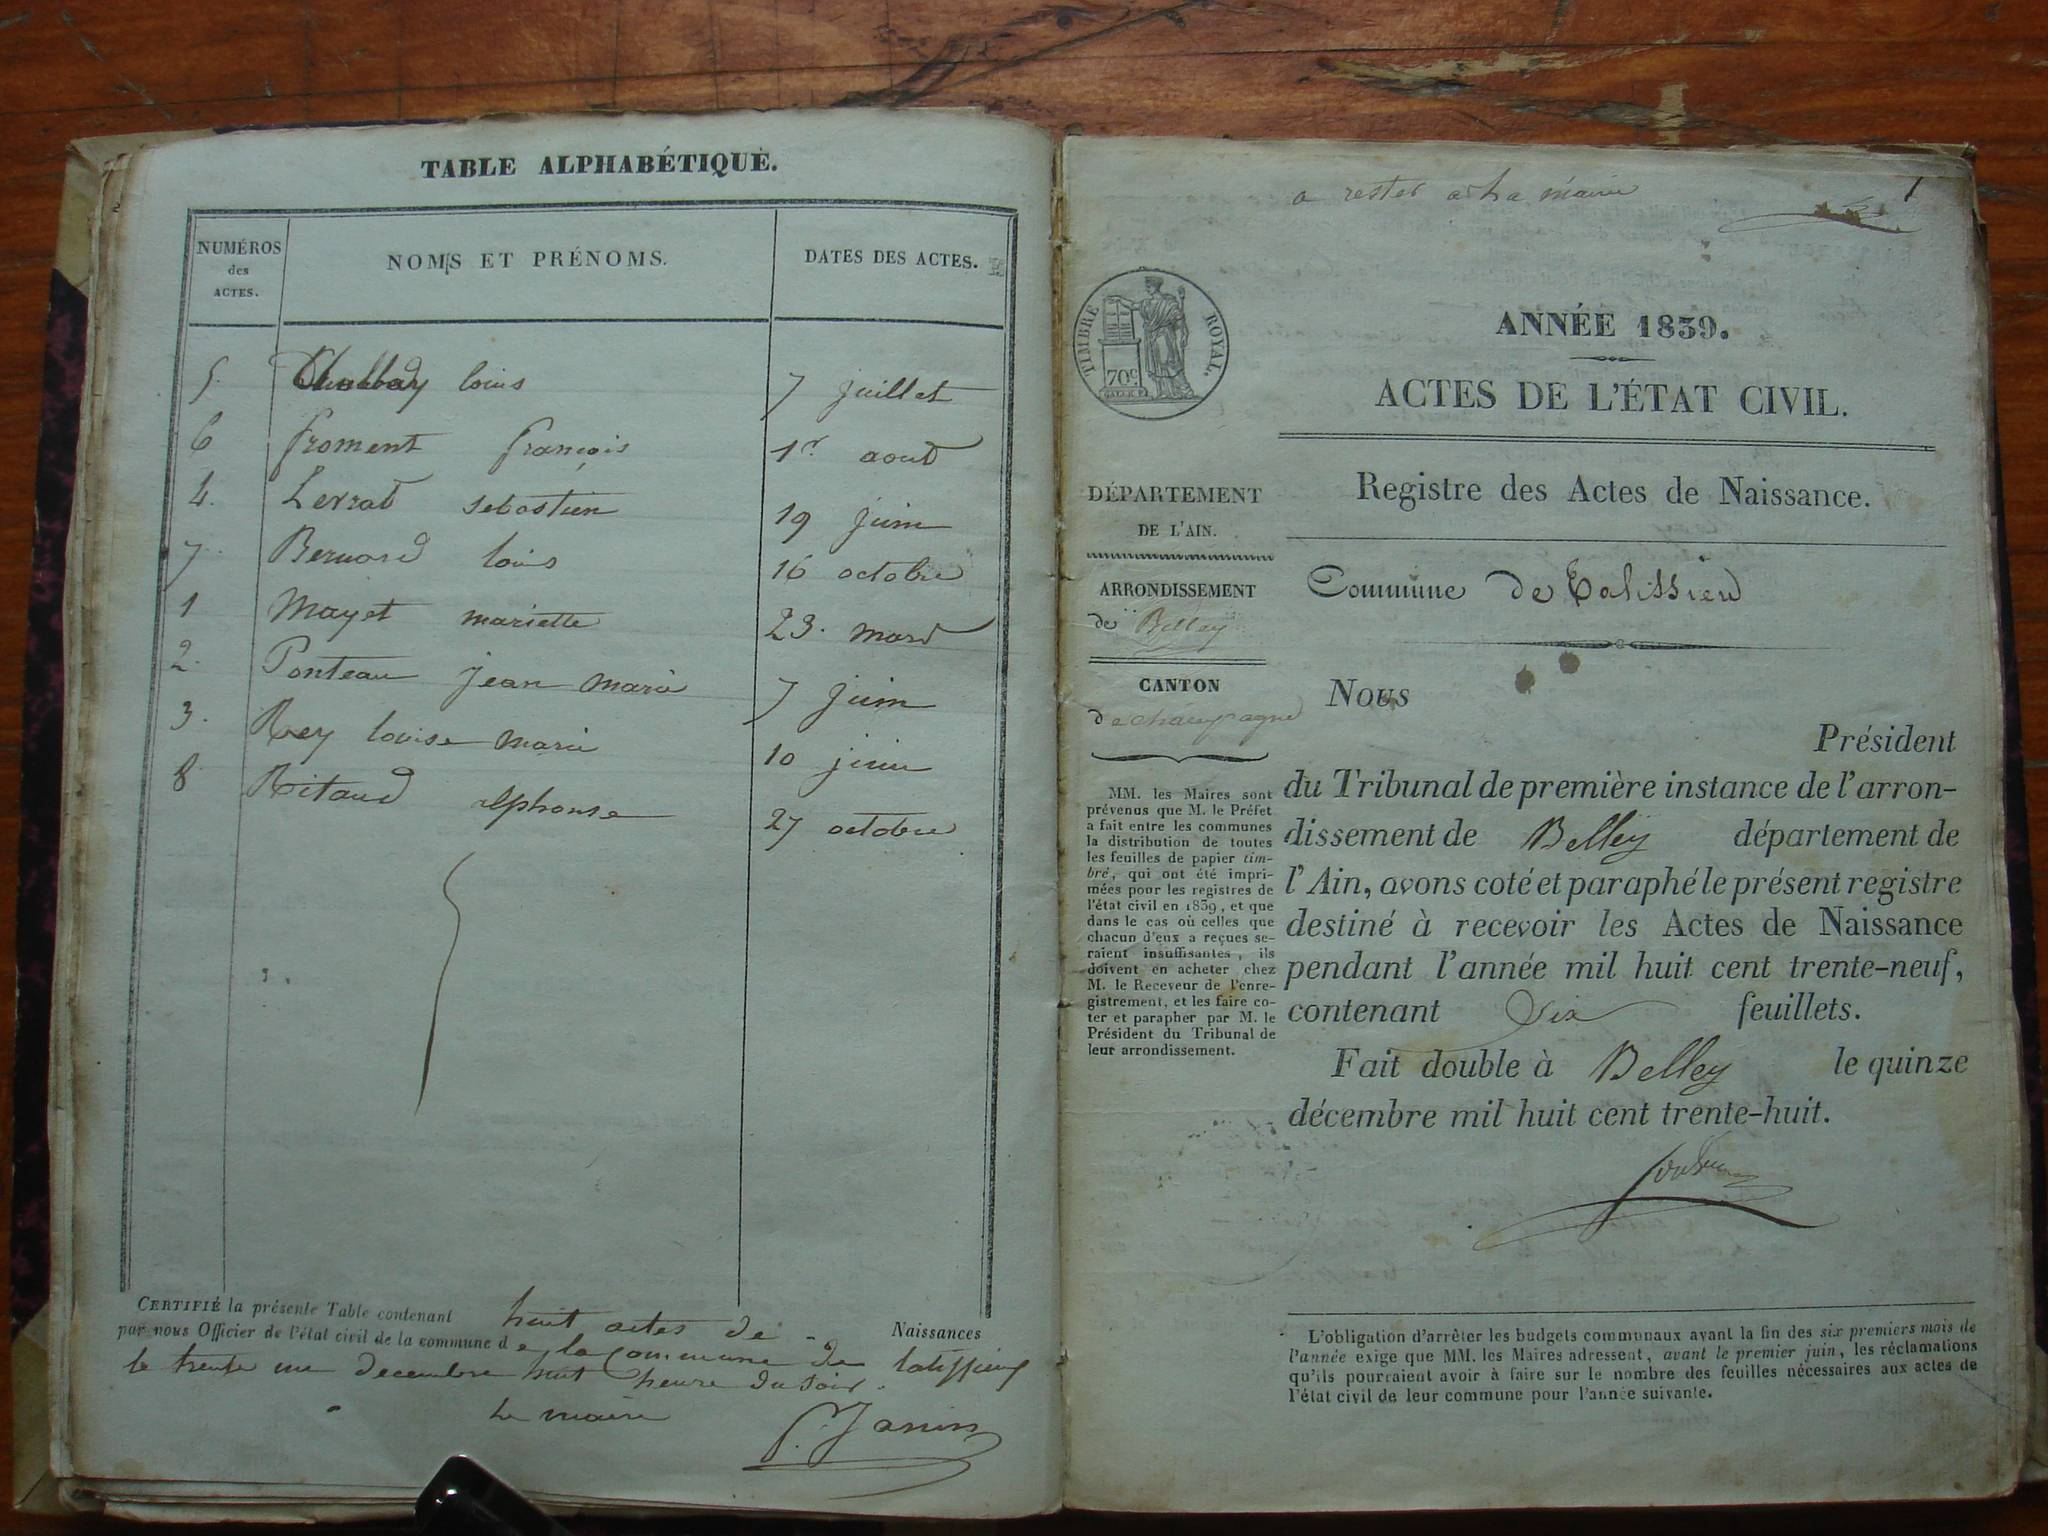 TABLE ALPHABÉTIQUE.
NUMÉROS
des
ACTES.
NOMS ET PRÉNOMS.
DATES DES ACTES.
5. louis 7 juillet
6 froment françois 1er aout
4. Lerrat sebastien 19 juin
7. Bernard louis 16 octobre
1 Mayet mariette 23. mars
2. Ponteau jean marie 7 juin
3. Rey louise marie 10 juin
8 Ritaud alphonse 27 octobre
CERTIFIÉ la présente Table contenant huit actes de Naissances
par nous Officier de l'état civil de la commune de la commune de talissieu
le trente un decembre huit heure du soir.
le maire P. Janin
a rester a la mairie
1
TIMBRE ROYAL.
70c
ANNÉE 1839.
ACTES DE L'ÉTAT CIVIL.
Registre des Actes de Naissance.
DÉPARTEMENT
DE L'AIN.
ARRONDISSEMENT
de Belley
CANTON
de champagne
MM. les Maires sont
prévenus que M. le Préfet
a fait entre les communes
la distribution de toutes
les feuilles de papier tim-
bré, qui ont été impri-
mées pour les registres de
l'état civil en 1839, et que
dans le cas où celles que
chacun d'eux a reçues se-
raient insuffisantes, ils
doivent en acheter chez
M. le Receveur de l'enre-
gistrement, et les faire co-
ter et parapher par M. le
Président du Tribunal de
leur arrondissement.
Commune de Talissieu
Nous
Président
du Tribunal de première instance de l'arron-
dissement de Belley département de
l'Ain, avons coté et paraphé le présent registre
destiné à recevoir les Actes de Naissance
pendant l'année mil huit cent trente-neuf,
contenant Six feuillets.
Fait double à Belley le quinze
décembre mil huit cent trente-huit.
L'obligation d'arrêter les budgets communaux avant la fin des six premiers mois de
l'année exige que MM. les Maires adressent, avant le premier juin, les réclamations
qu'ils pourraient avoir à faire sur le nombre des feuilles nécessaires aux actes de
l'état civil de leur commune pour l'année suivante.